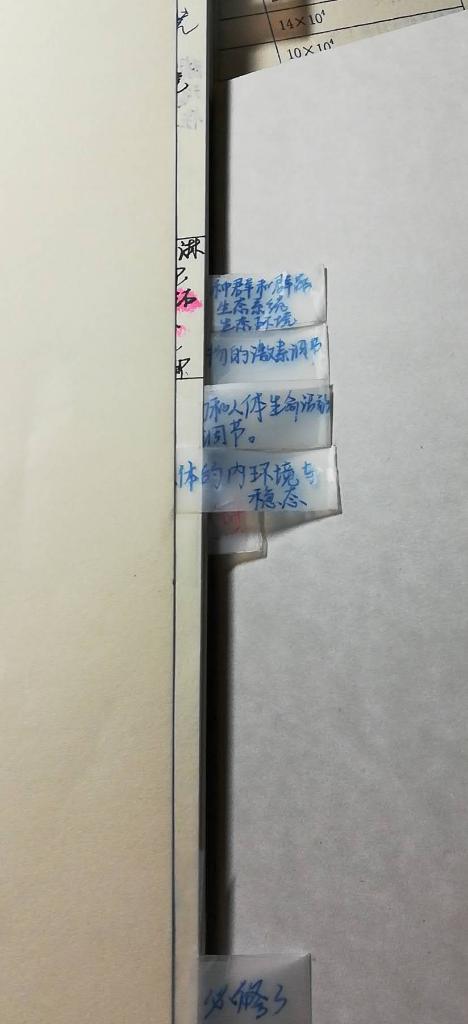 14×10⁴
10×10⁴
淋
种群和群落
生态系统
生态环境
物的激素调节
和人体生命活动
调节。
体的内环境与
稳态
必修3